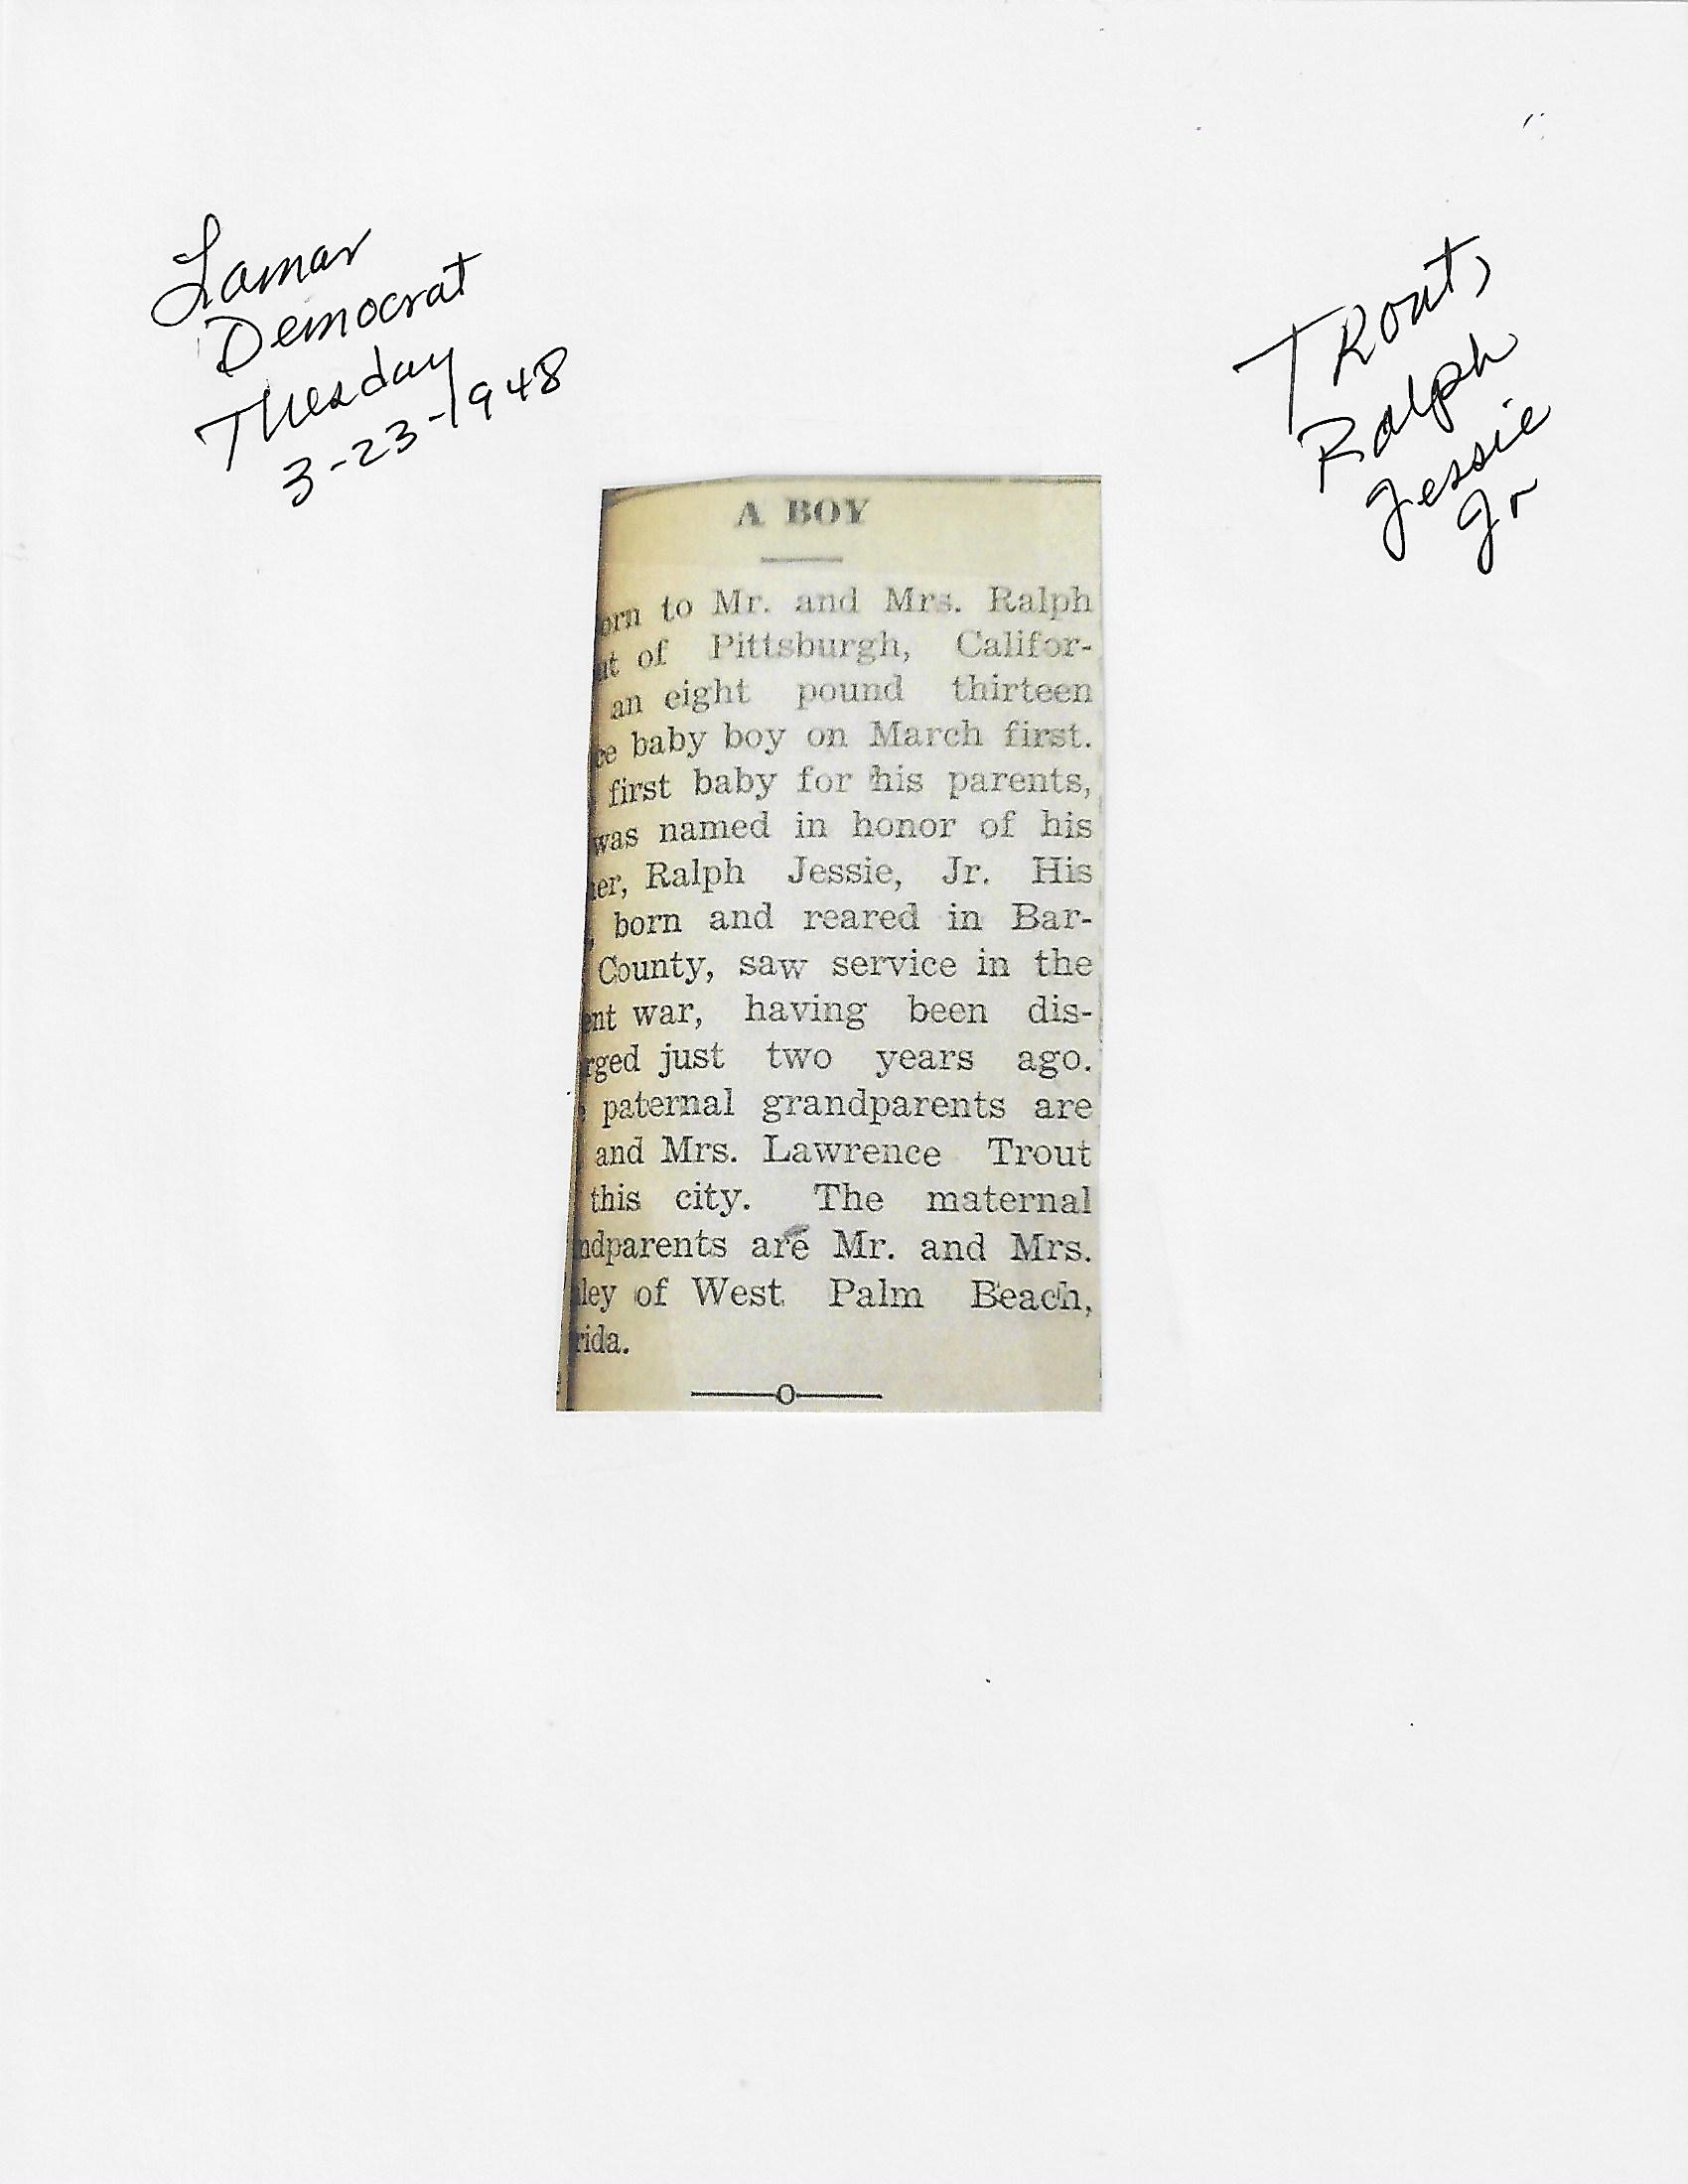 Lamar
Democrat
Tuesday
3-23-1948
TRout,
Ralph
Jessie
Jr
A BOY
orn to Mr. and Mrs. Ralph
ut of Pittsburgh, Califor-
an eight pound thirteen
ce baby boy on March first.
first baby for his parents,
was named in honor of his
her, Ralph Jessie, Jr. His
born and reared in Bar-
County, saw service in the
ent war, having been dis-
rged just two years ago.
paternal grandparents are
and Mrs. Lawrence Trout
this city. The maternal
ndparents are Mr. and Mrs.
ley of West Palm Beach,
rida.